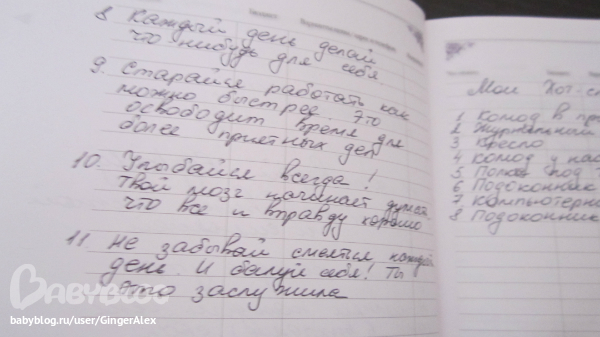 8. Каждый день делай
что нибудь для себя.
9. Старайся работать как
можно быстрее. Это
освободит время для
более приятных дел
10. Улыбайся всегда!
Твой мозг начинает думать
что все и вправду хорошо
11. Не забывай смеяться каждый
день. И балуй себя! Ты
это заслужила
Мои Хот-сп
1 Комод в пр
2 Журнальный
3 Кресло
4 Комод у нас
5 Полка под т
6 Подоконник
7 Компьютерн
8 Подоконник
BABYBLOG
babyblog.ru/user/GingerAlex